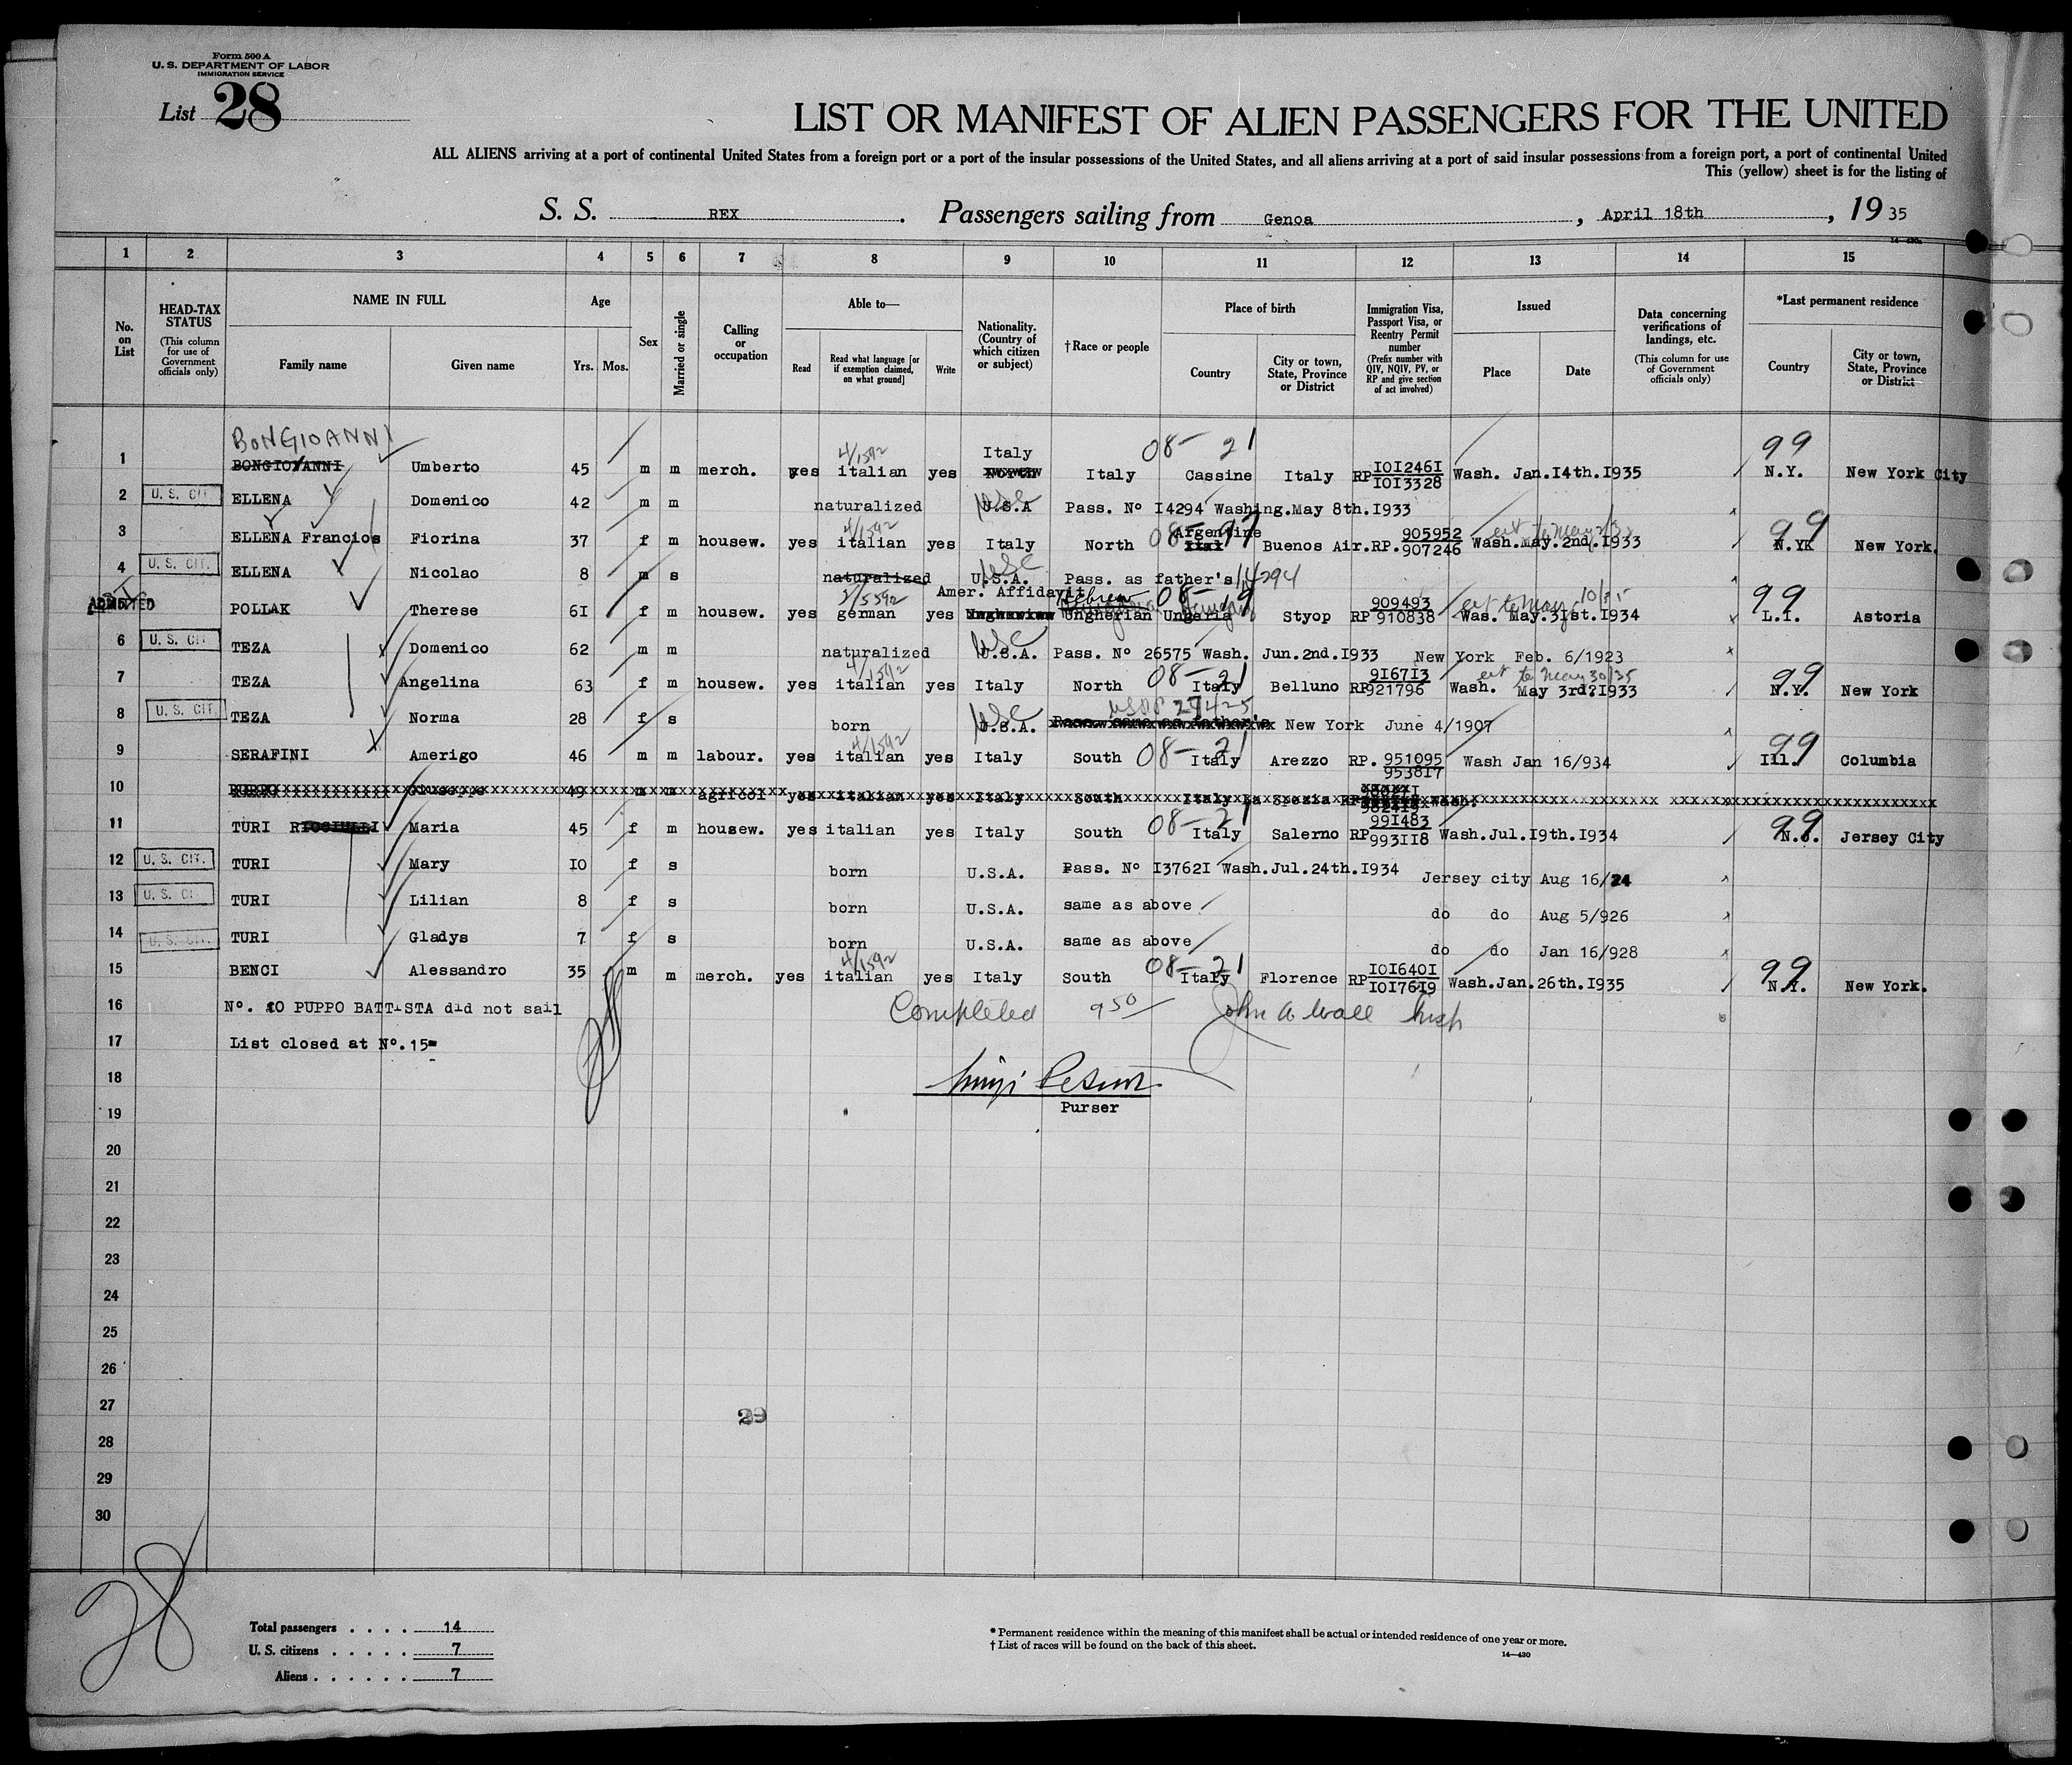 Form 500 A
U. S. DEPARTMENT OF LABOR
IMMIGRATION SERVICE
List 28
LIST OR MANIFEST OF ALIEN PASSENGERS FOR THE UNITED
ALL ALIENS arriving at a port of continental United States from a foreign port or a port of the insular possessions of the United States, and all aliens arriving at a port of said insular possessions from a foreign port, a port of continental United
This (yellow) sheet is for the listing of
S. S. REX. Passengers sailing from Genoa, April 18th, 19 35
14-430a
1 2 3 4 5 6 7 8 9 10 11 12 13 14 15
No. on List
HEAD-TAX STATUS (This column for use of Government officials only)
NAME IN FULL
Family name
Given name
Age
Yrs. Mos.
Sex
Married or single
Calling or occupation
Able to—
Read
Read what language [or if exemption claimed, on what ground]
Write
Nationality. (Country of which citizen or subject)
†Race or people
Place of birth
Country
City or town, State, Province or District
Immigration Visa, Passport Visa, or Reentry Permit number (Prefix number with QIV, NQIV, PV, or RP and give section of act involved)
Issued
Place
Date
Data concerning verifications of landings, etc. (This column for use of Government officials only)
*Last permanent residence
Country
City or town, State, Province or District
BONGIOANNI 4/1592 Italy 08- 21 99
1 BONGIOVANNI Umberto 45 m m merch. yes italian yes Italy Cassine Italy RP I0I246I I0I3328 Wash. Jan.I4th.I935 N.Y. New York City
2 U. S. CIT. ELLENA Domenico 42 m m naturalized U.S.A USC Pass. Nº I4294 Washing.May 8th.I933
3 ELLENA Francios Fiorina 37 f m housew. yes 4/1592 italian yes Italy North 08- 97 Argentine Buenos Air.RP. 905952 907246 Wash.May.2nd.I933 99 N.YK New York.
4 U. S. CIT. ELLENA Nicolao 8 m s naturalized U.S.A. USC Pass. as father's 14294
Amer. Affidavit
ADMITTED POLLAK Therese 6I f m housew. yes 2/5592 german yes Hebrew Ungherian 08- 19 Ungheria Styop RP 909493 910838 Was. May.3Ist.I934 ext to May 10/35 99 L.I. Astoria
6 U. S. CIT. TEZA Domenico 62 m m naturalized U.S.A. USC Pass. Nº 26575 Wash. Jun.2nd.I933 New York Feb. 6/1923
7 TEZA Angelina 63 f m housew. yes 4/1592 italian yes Italy North 08- 21 Italy Belluno RP 9I67I3 921796 Wash. May 3rd.I933 ext to May 30/35 99 N.Y. New York
8 U. S. CIT. TEZA Norma 28 f s born U.S.A. USC New York June 4/1907
9 SERAFINI Amerigo 46 m m labour. yes 4/1592 italian yes Italy South 08- 21 Italy Arezzo RP. 951095 9538I7 Wash Jan 16/934 99 Ill. Columbia
10 PUPPO Giuseppe 49 m m agricol yes italian yes Italy South Italy La Spezia RP Wash.
11 TURI Maria 45 f m housew. yes italian yes Italy South 08- 21 Italy Salerno RP 99I483 993II8 Wash.Jul.I9th.I934 99 N.J. Jersey City
12 U. S. CIT. TURI Mary I0 f s born U.S.A. Pass. Nº I3762I Wash.Jul.24th.I934 Jersey city Aug 16/24
13 U. S. CIT. TURI Lilian 8 f s born U.S.A. same as above do do Aug 5/926
14 U. S. CIT. TURI Gladys 7 f s born U.S.A. same as above do do Jan 16/928
15 BENCI Alessandro 35 m m merch. yes 4/1592 italian yes Italy South 08- 21 Italy Florence RP I0I640I I0I76I9 Wash.Jan.26th.I935 99 N.Y. New York.
16 Nº. 10 PUPPO BATTISTA did not sail Completed 950 John A Wall Insp
17 List closed at Nº.15=
18
19 Purser
20
21
22
23
24
25
26
27
29
28
29
30
28
Total passengers . . . . 14
U. S. citizens . . . . . 7
Aliens . . . . . . 7
* Permanent residence within the meaning of this manifest shall be actual or intended residence of one year or more.
† List of races will be found on the back of this sheet.
14—430